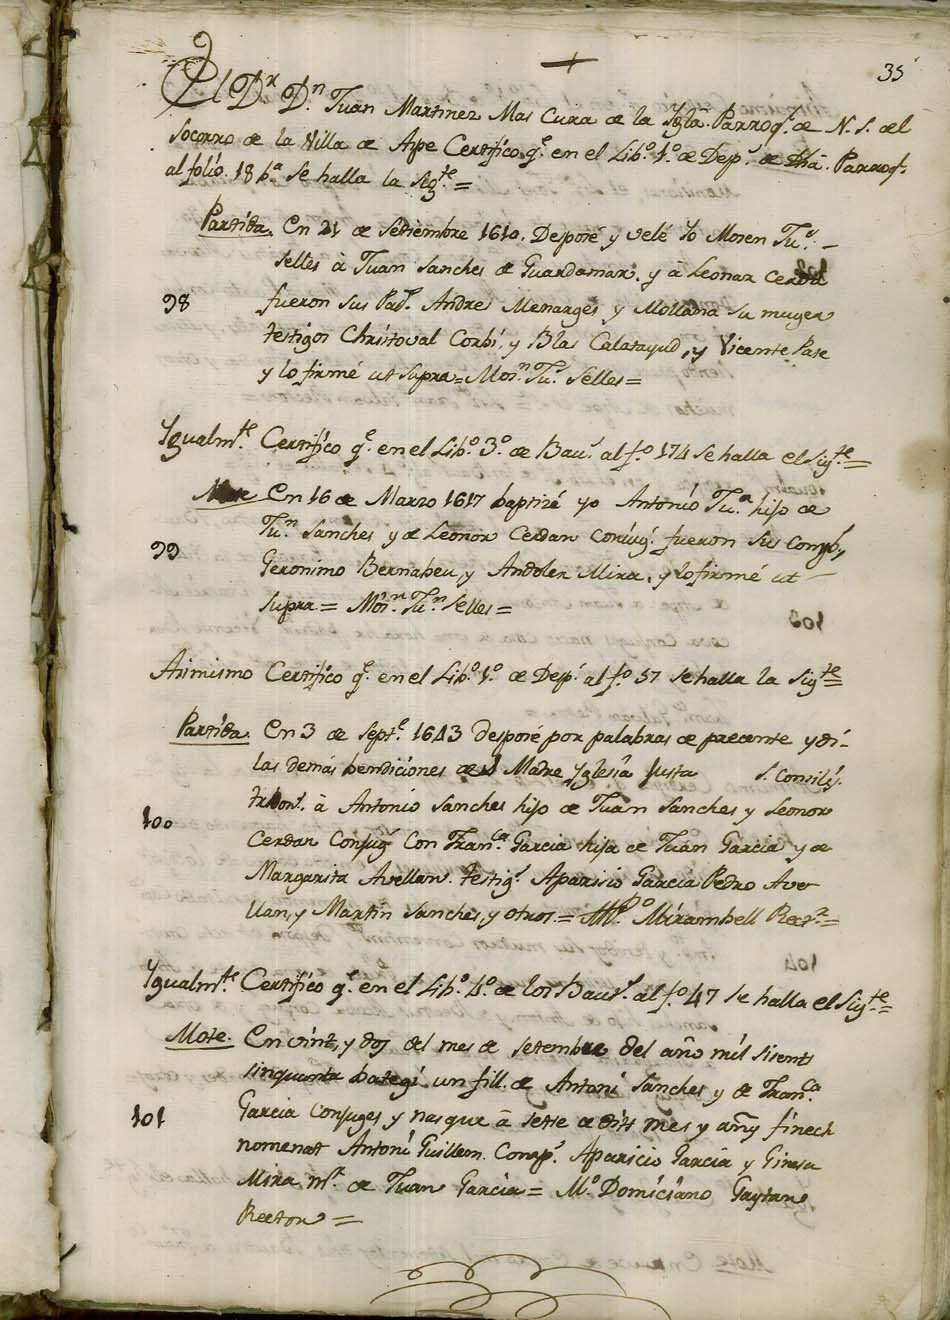 35
El Dr. Dn. Juan Martinez Mas Cura de la Ygla. Parroql. de N. S. del
Socorro de la Villa de Aspe Certifico qe. en el Libo. 1º de Desps. de dha. Parroqa.
al folio. 18 ba. se halla la Sigte. =
Partida. En 21 de Setiembre 1610. Desposé y velé Yo Mosen Ju.
Selles à Juan Sanches de Guardamar. y à Leonar Cerdan
98 fueron sus Pads. Andres Menarges y Mollana su muger
testigos Christoval Corbi, y Blas Calatayud, y Vicente Pase
y lo firmé ut supra = Mosn. Ju. Selles =
Ygualmte. Certifico qe. en el Libo. 3º. de Baus. al fo. 174 se halla el Sigte. =
Mote En 16 de Marzo 1617 baptizé yo Antonio Jua. hijo de
Jun. Sanches y de Leonor Cerdan conjugs. fueron sus Compbs,
99 Geronimo Bernabeu, y Andolza Mira, y lo firmé ut
supra = Mosn. Jun. Selles =
Asimismo Certifico qe. en el Libo. 1º. de Desps. al fo. 57 se halla la Sigte. =
Partida. En 3 de Septe. 1643 desposé por palabras de precente y di-
las demás bendiciones de S Madre Yglesia Justa S. Consilij.
tridons. à Antonio Sanches hijo de Juan Sanches y Leonor
100 Cerdan Conjugs Con Franca. Garcia hija de Juan Garcia y de
Margarita Avellan. testigs. Aparisio Garcia Pedro Ave
llan, y Martin Sanches, y otros. = Mirambell Rectr. =
Ygualmte. Certifico qe. en el Libo. 4º. de los Baus. al fo. 47 se halla el Sigte. =
Mote. En vint, y dos del mes de setembre del año mil sisents
sinquanta bategi un fill. de Antoni Sanches y de Franca.
101 Garcia conjuges y nasque à setse de dits mes y any finech
nomenat Antoni Guillem. Comps. Aparicio Garcia y Ginesa
Mira mr. de Juan Garcia = Mo. Domiciano Gaytan
Rector =